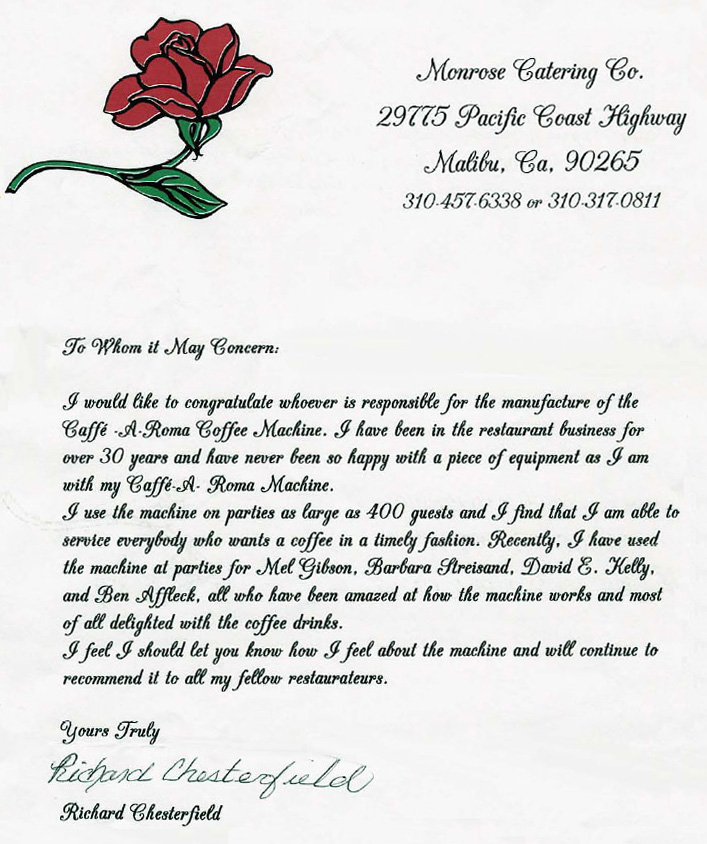 Monrose Catering Co.
29775 Pacific Coast Highway
Malibu, Ca, 90265
310-457-6338 or 310-317-0811
To Whom it May Concern:
I would like to congratulate whoever is responsible for the manufacture of the
Caffé -A-Roma Coffee Machine. I have been in the restaurant business for
over 30 years and have never been so happy with a piece of equipment as I am
with my Caffé-A- Roma Machine.
I use the machine on parties as large as 400 guests and I find that I am able to
service everybody who wants a coffee in a timely fashion. Recently, I have used
the machine at parties for Mel Gibson, Barbara Streisand, David E. Kelly,
and Ben Affleck, all who have been amazed at how the machine works and most
of all delighted with the coffee drinks.
I feel I should let you know how I feel about the machine and will continue to
recommend it to all my fellow restaurateurs.
Yours Truly
Richard Chesterfield
Richard Chesterfield